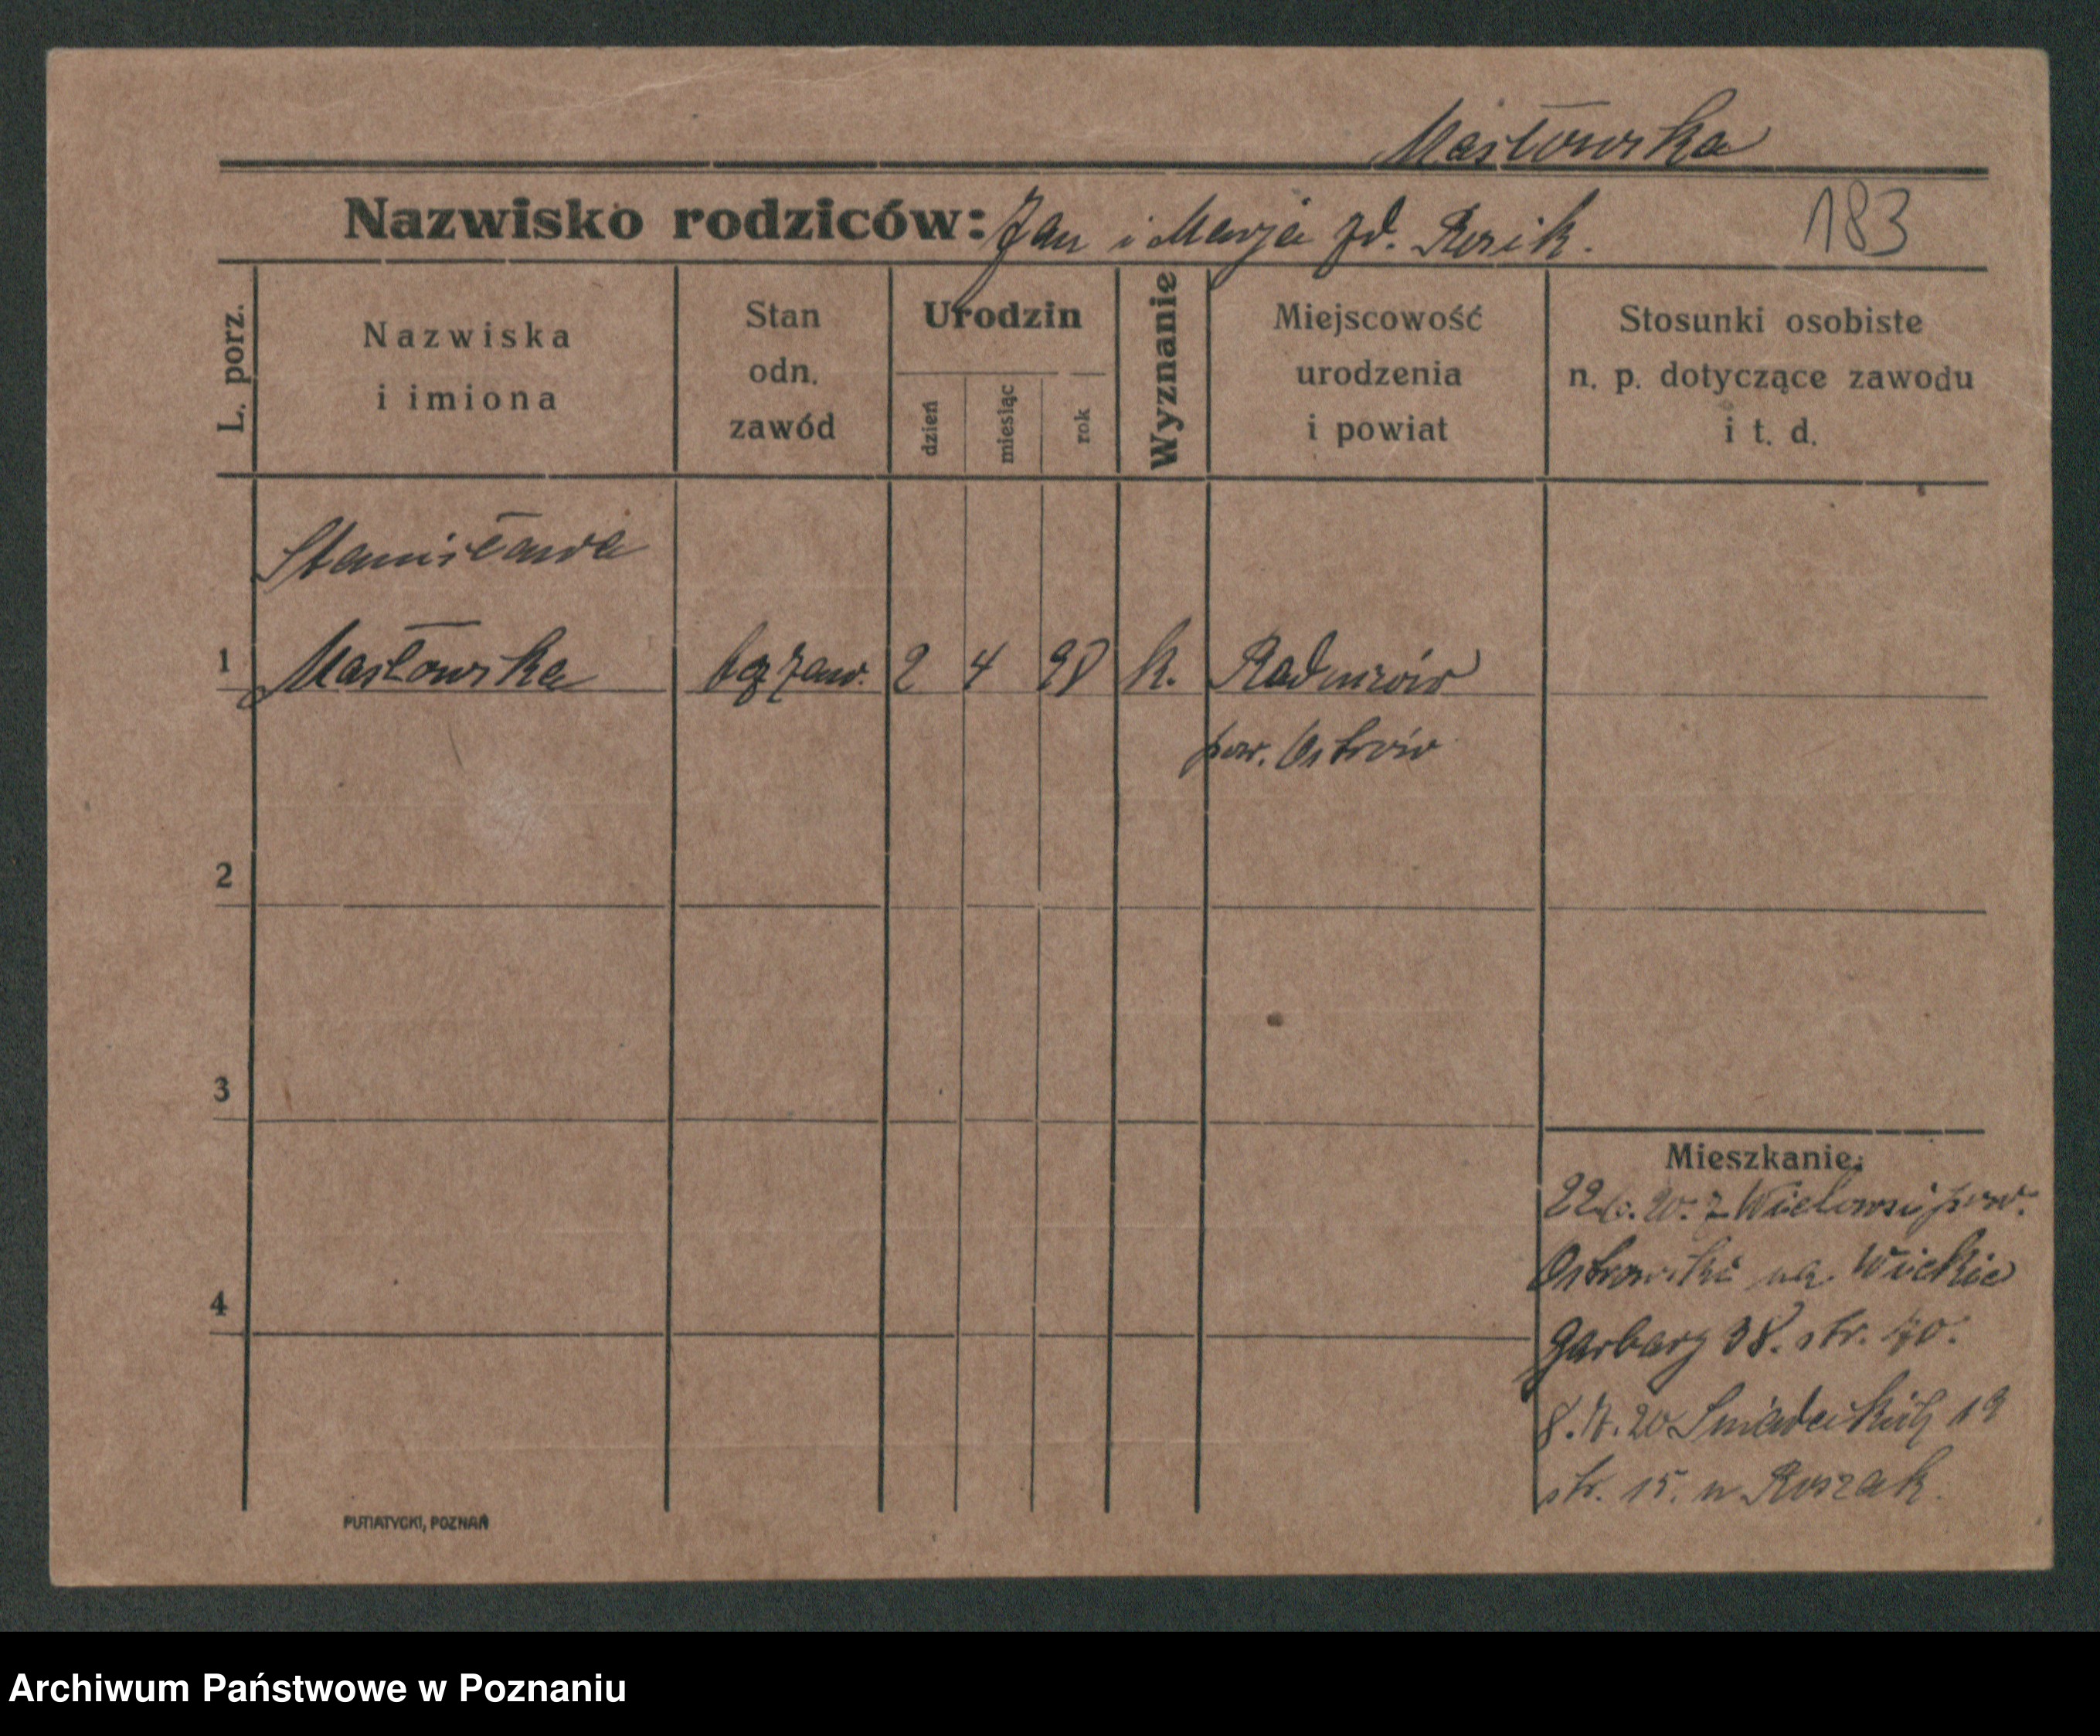 Masłowska
Nazwisko rodziców: Jan i Marja zd. 183
L. porz.
Nazwiska
i imiona
Stan
odn.
zawód
Urodzin
dzień
miesiąc
rok
Wyznanie
Miejscowość
urodzenia
i powiat
Stosunki osobiste
n. p. dotyczące zawodu
i t. d.
Stanisława
1 Masłowska bez zaw. 2 4 98 k.
pow. Ostrów
2
3
4
Mieszkanie:
20. z pow.
na Wielkie
Garbary 38. str.
20 Śniadeckich 19
str. 15. u Roszak.
PUTIATYCKI, POZNAŃ
Archiwum Państwowe w Poznaniu